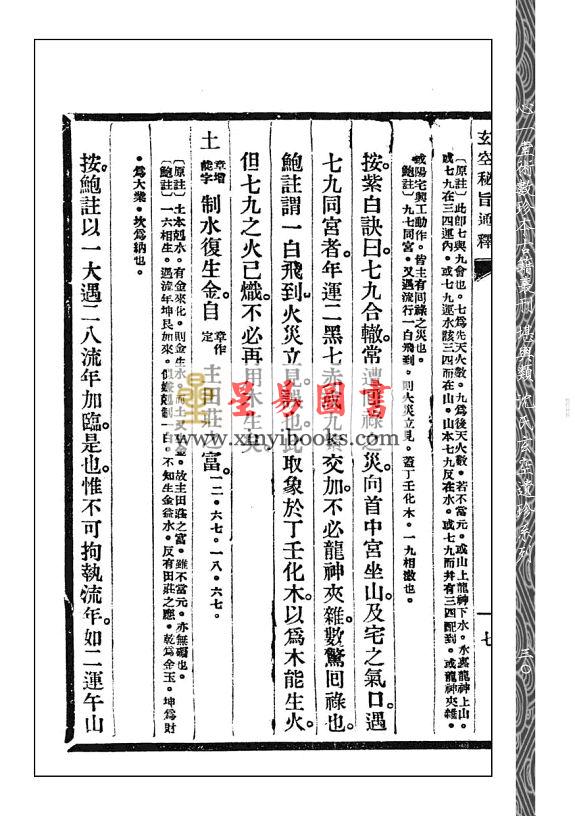 心一堂術數珍本古籍叢刊 堪輿類 沈氏玄空遺珍系列 三〇
玄空秘旨通釋
十七
〔原註〕此即七與九會也。七為先天火數。九為後天火數。若不當元。或山上龍神下水。水裏龍神上山。
或七九在三四運內。或七九運水該三四而在山。山本七九反在水。或七九而并有三四配到。或龍神夾雜。
或陽宅興工動作。皆主有回祿之災也。
〔鮑註〕九七同宮。又遇流行一白飛到。則火災立見。蓋丁壬化木。一九相激也。
按紫白訣曰七九合轍常遭回祿之災向首中宮坐山及宅之氣口遇
七九同宮者年運二黑七赤或九紫交加不必龍神夾雜數驚回祿也。
鮑註謂一白飛到火災立見 取象於丁壬化木以為木能生火。
但七九之火已熾不必再用木生矣
土 章增能字 制水復生金自 章作定 主田莊之富。 一二・六七・一八・六七・
〔原註〕土本剋水。有金來化。則金生水。而土 金。故主田莊之富。雖不當元。亦無礙也。
〔鮑註〕一六相生。遇流年坤艮如來。似嫌剋制一白。不知生金益水。反有田莊之應。乾為金玉。坤為財
・為大業。坎為納也。
按鮑註以一大遇二八流年加臨是也惟不可拘執流年如二運午山
星易圖書
www.xinyibooks.com